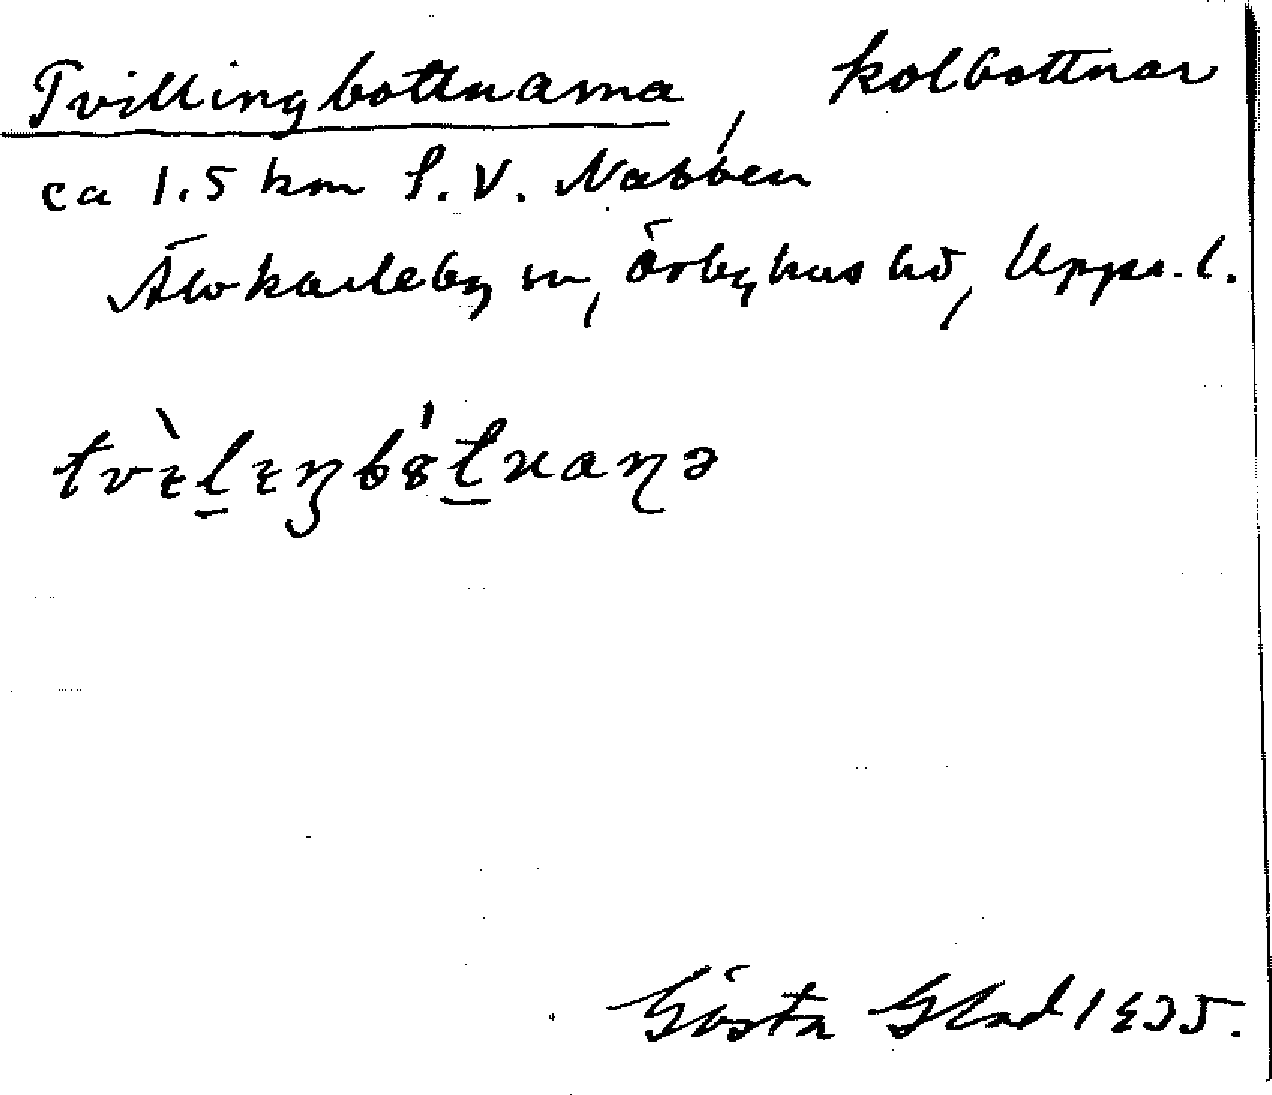 Tvillingbottnarna, kolbottnar
ca 1.5 km S.V. Nabben
Älvkarleby sn, Örbyhus hd, Upps. l.
Gösta Glad 1935.